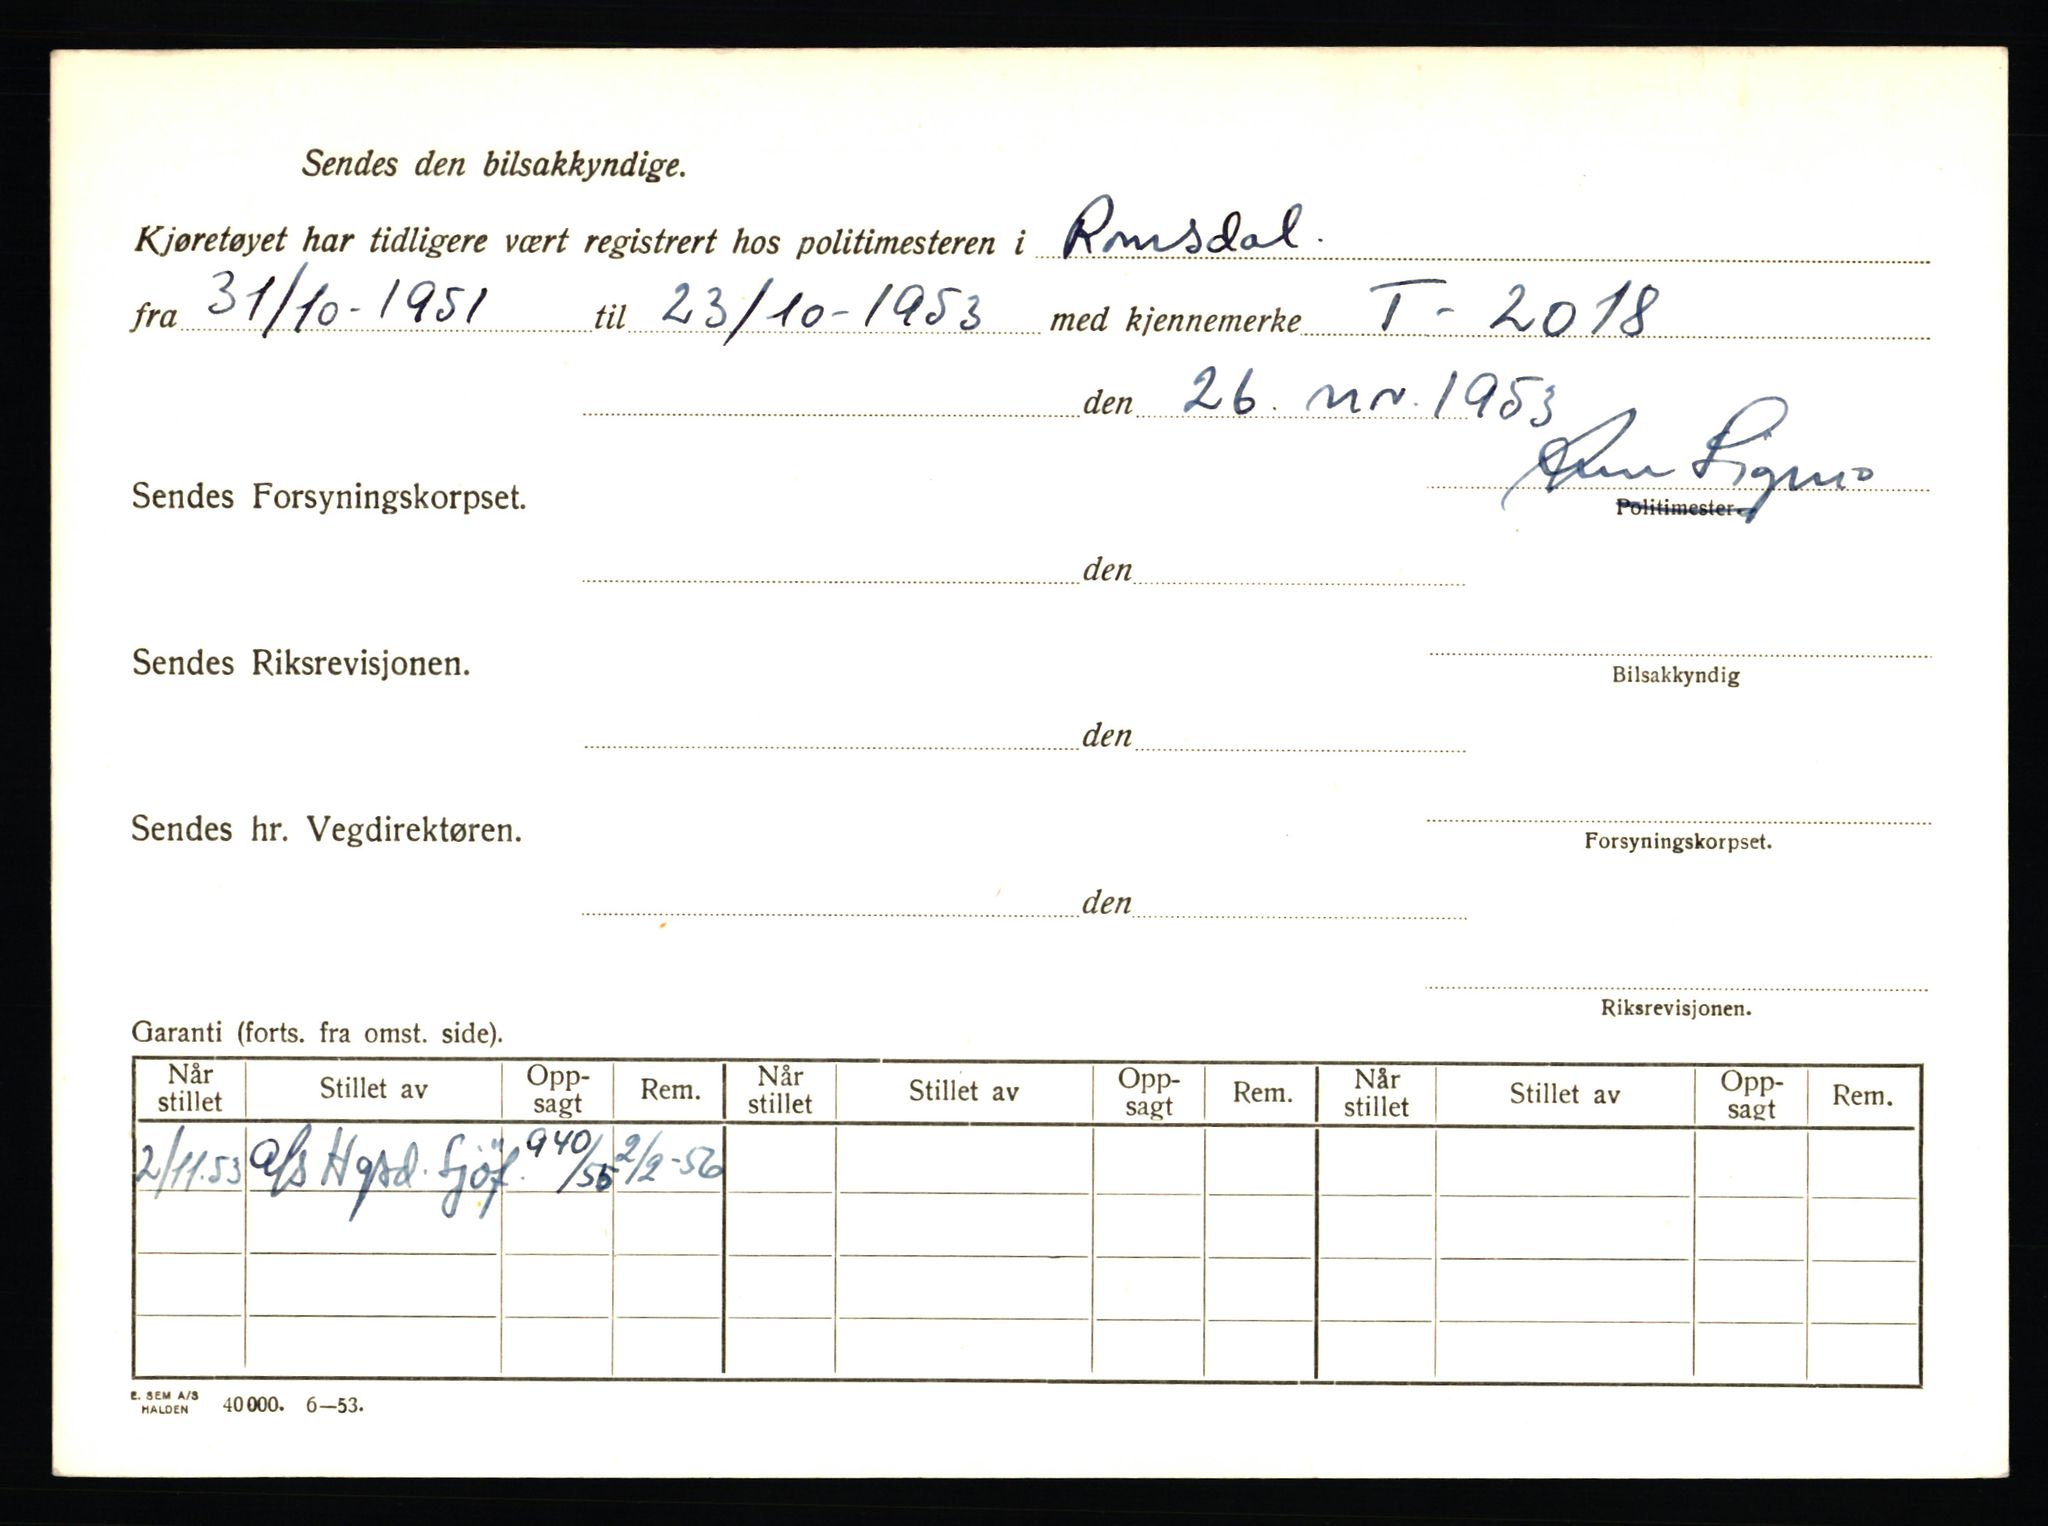 Sendes den bilsakkyndige.
Kjøretøyet har tidligere vært registrert hos politimesteren i Romsdal.
fra 31/10-1951 til 23/10-1953 med kjennemerke T-2018
den 26. nov. 1953
Sendes Forsyningskorpset.
Politimester.
den
Sendes Riksrevisjonen.
Bilsakkyndig
den
Sendes hr. Vegdirektøren.
Forsyningskorpset.
den
Riksrevisjonen.
Garanti (forts. fra omst. side).
Når stillet Stillet av Opp-sagt Rem. Når stillet Stillet av Opp-sagt Rem. Når stillet Stillet av Opp-sagt Rem.
2/11.53 a/s Hgsd. Sjöf. 940/55 2/2-56
E. SEM A/S
HALDEN 40000. 6—53.